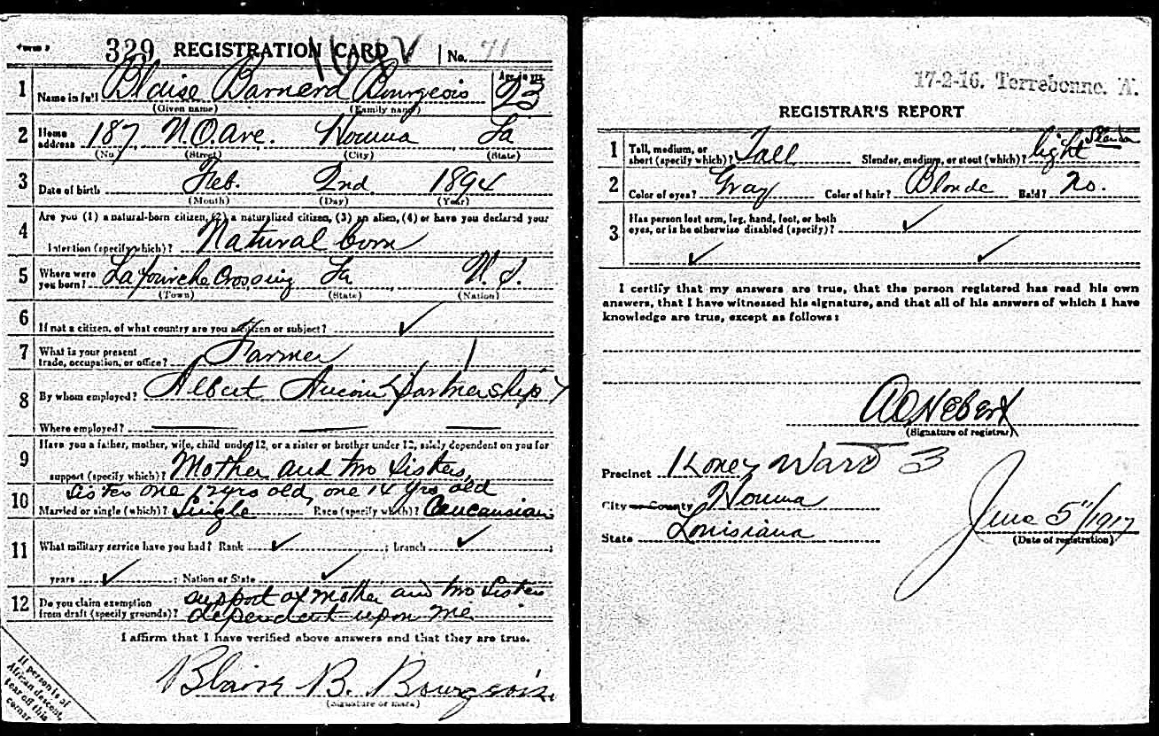 Form 1 329 REGISTRATION CARD No. 71
1 Name in full Blaise Barnerd Bourgeois Age in yrs. 23
(Given name) (Family name)
2 Home address 187 N.O. ave. Houma La
(No.) (Street) (City) (State)
3 Date of birth Feb. 2nd 1894
(Month) (Day) (Year)
4 Are you (1) a natural-born citizen, (2) a naturalized citizen, (3) an alien, (4) or have you declared your
intention (specify which)? Natural born
5 Where were you born? Lafourche Crossing La U.S.
(Town) (State) (Nation)
6 If not a citizen, of what country are you a citizen or subject? ✓
7 What is your present trade, occupation, or office? Farmer
8 By whom employed? Albert Aucoin (partnership)
Where employed?
9 Have you a father, mother, wife, child under 12, or a sister or brother under 12, solely dependent on you for
support (specify which)? Mother and two Sisters,
Sister one 12 yrs old, one 14 yrs old
10 Married or single (which)? Single Race (specify which)? Caucausian
11 What military service have you had? Rank ✓ ; branch ✓ ;
years ✓ ; Nation or State ✓
12 Do you claim exemption from draft (specify grounds)? support of mother and two Sisters
dependent upon me
I affirm that I have verified above answers and that they are true.
Blaise B. Bourgeois
(Signature or mark)
If person is of
African descent,
tear off this
corner
17-2-16. Terrebonne. A.
REGISTRAR'S REPORT
1 Tall, medium, or short (specify which)? Tall Slender, medium, or stout (which)? light Slender
2 Color of eyes? Gray Color of hair? Blonde Bald? No.
3 Has person lost arm, leg, hand, foot, or both
eyes, or is he otherwise disabled (specify)? ✓
✓ ✓
I certify that my answers are true, that the person registered has read his own
answers, that I have witnessed his signature, and that all of his answers of which I have
knowledge are true, except as follows:
A O Hebert
(Signature of registrar)
Precinct 1 Ward 3
City or County Houma
State Louisiana
June 5"/1917
(Date of registration)